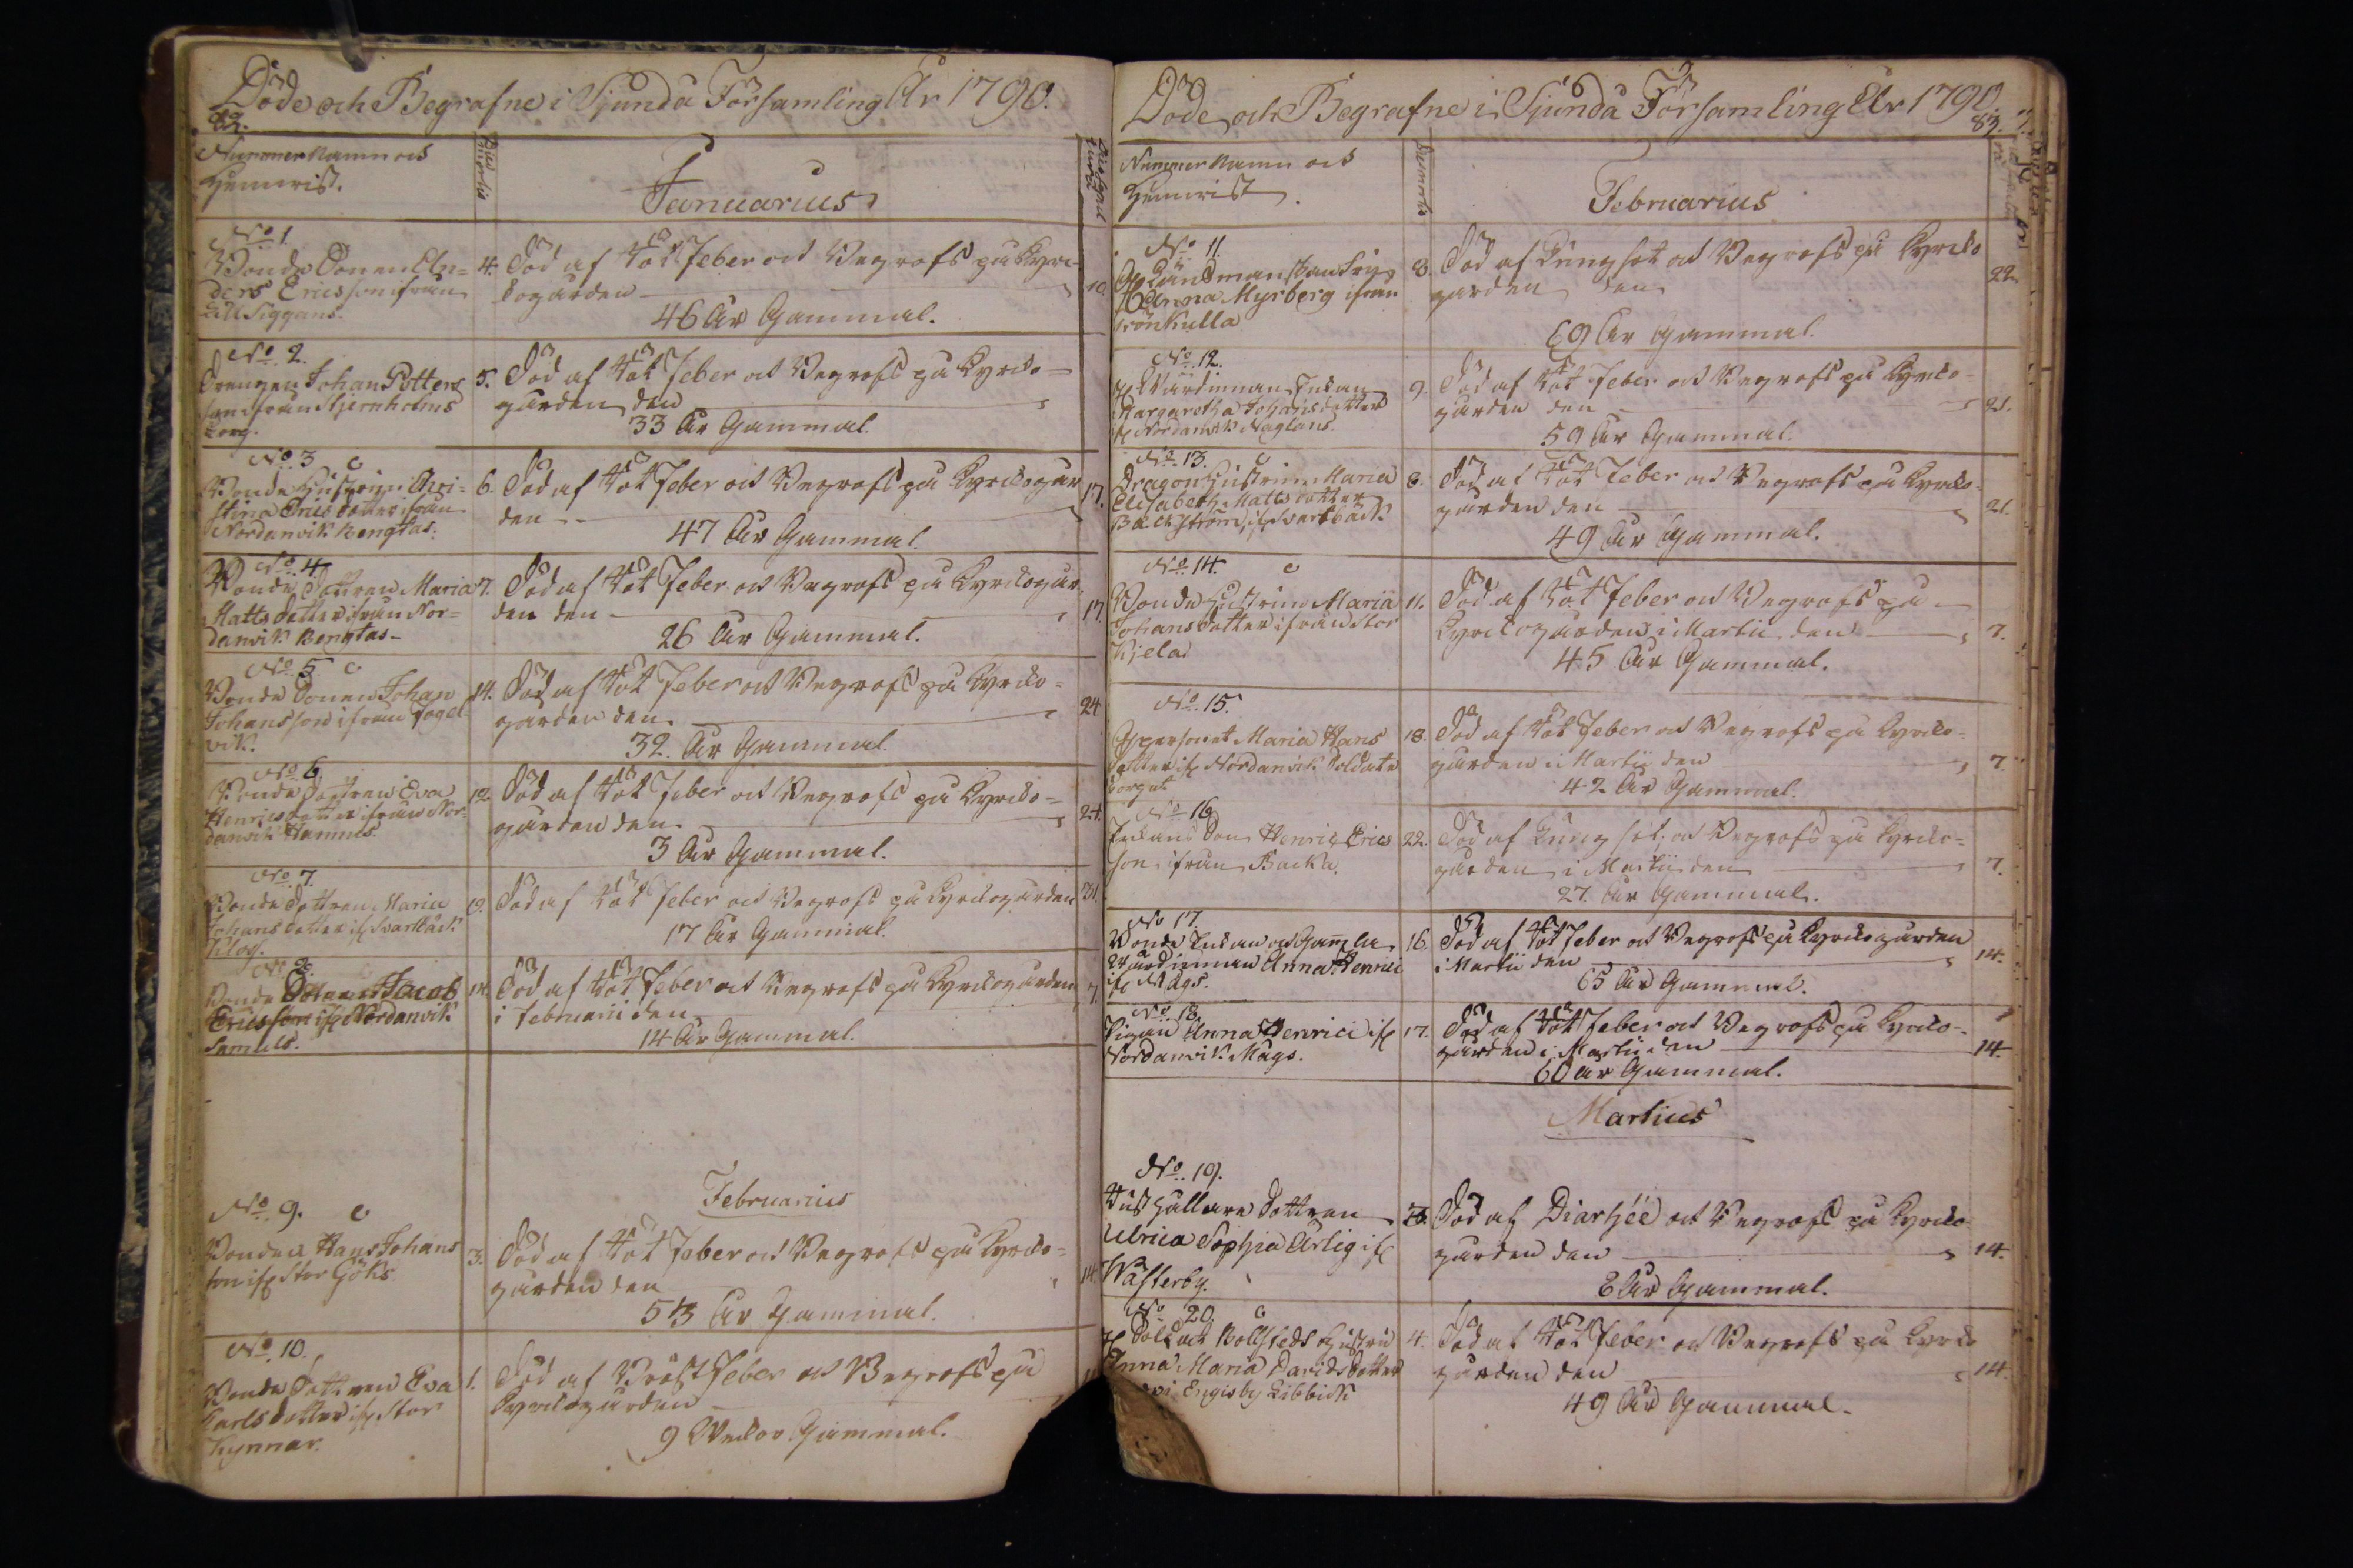 Döde och Begrafne i Sjundå Församling År 1790.
82.
Nummer Namn och
Hemvist.
Dies Mortis
Januarius
Dies Sepul
turæ
No 1.
Bonde Sonen An=
ders Ericsson ifrån
Lill Siggans.
4. Död af Röt Feber och Begrofs på Kyr-
kogården
10.
46 År Gammal.
No 2.
Drengen Johan Petters
son ifrån Stjernholms
torg.
5. Död af Röt Feber och Begrofs på Kyrko-
gården den
33 År Gammal.
No 3
Bonde Hustrun Chri=
stina Erics dotter ifrån
Nordanvik Bengtas.
6. Död af Röt Feber och Begrofs på Kyrkogår
den
17.
47 År Gammal.
No 4.
Bonde Dottren Maria
Matts dotter ifrån Nor=
danvik Bengtas
7. Död af Röt Feber och Begrofs på Kyrkogår
den den
17.
26 År Gammal.
No 5.
Bonde Sonen Johan
Johansson ifrån Fogel
vik.
14. Död af Röt Feber och Begrofs på Kyrko=
gården den
24
32 År Gammal.
No 6.
Bonde Dottren Eva
Henrics dotter ifrån Nor
danvik Hannus
12. Död af Röt Feber och Begrofs på Kyrko=
gården den
24.
3 År Gammal.
No 7.
Bonde Dottren Maria
Johans dotter if Svartbäck
Klog.
Död af Röt Feber och Begrofs på Kyrkogården
31.
17 År Gammal.
No 8.
Bonde Sonen Jacob
Ericsson if Nordanvik
Samuls.
14. Död af Röt Feber och Begrofs på Kyrkogården
i Februarii den
7.
14 År Gammal.
Februarius
No 9.
Bonden Hans Johans
son if Stor Göks
3. Död af Röt Feber och Begrofs på Kyrko=
gården den
14.
53 År Gammal.
No 10.
Bonde Dottren Eva
Carls dotter if Stor
Kynnar.
1. Död af Bröst Feber och Begrofs på
Kyrkogården
9 Veckor Gammal.
Döde och Begrafne i Sjundå Församling År 1790.
83.
Nummer Namn och
Hemvist.
Februarius
No 11.
Länsmans Enkan Fru
Anna Myrberg ifrån
Grönkulla
8. Död af Lungsot och Begrofs på Kyrko
gården den
22.
69 År Gammal.
No 12.
Wärdinnan Enkan
Margaretha Johansdotter
if Nordanvik Naglans.
9. Död af Röt Feber och Begrofs på Kyrko-
gården den
21.
59 År Gammal.
No 13.
Dragon Hustrun Maria
Elisabeth Matts dotter
Bäckström, if Svartbäck.
8. Död af Röt Feber och Begrofs på Kyrko-
gården den
21.
49 År Gammal.
No 14.
Bonde Hustrun Maria
Johans dotter ifrån Stor
Kjela
11. Död af Röt Feber och Begrofs på
Kyrkogården i Martii den
7.
45 År Gammal.
No 15.
Maria Hans
dotter if Nordanvik Soldate
torpet
18. Död af Röt Feber och Begrofs på Kyrko=
gården i Martii den
7.
42 År Gammal.
No 16
Enkans Son Henric Erics
son ifrån Backa.
22. Död af Lungsot, och Begrofs på Kyrko=
gården i Martii den
7.
27 År Gammal.
No 17.
Bonde Enkan och Gamla
Wärdinnan Anna Henrici
if Mågs.
16. Död af Röt Feber och Begrofs på Kyrkogården
i Martii den
14.
65 År Gammal.
No 18.
Pigan Anna Henrici if
Nordanvik Mågs.
17. Död af Röt Feber och Begrofs på Kyrko-
gården i Martii den
14.
60 År Gammal.
Martius
No 19.
Hushållare Dottren
Ulrica Sophia Arlig if
Wästerby.
Död af Diarhée och Begrofs på Kyrko
gården den
14.
8 År Gammal.
No 20.
Soldat Bollsteds Hustru
Anna Maria Davids dotter
Engisby Libbick
4. Död af Röt Feber och Begrofs på Kyrko
gården den
14.
49 År Gammal.